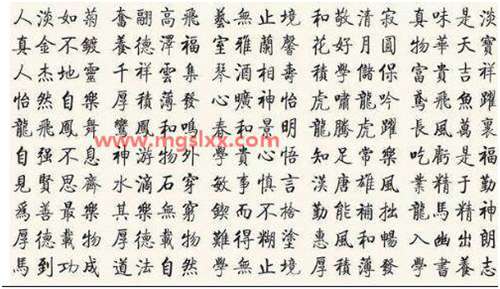 人淡如菊 奮翮高飛 藝無止境 和敬清寂 真味是淡
真金不鍍 養德澤福 室雅蘭馨 花好月圓 物華天寶
人杰地靈 千祥雲集 琴酒相壽 積學儲保 富貴吉祥
怡然自樂 厚積薄發 心曠神怡 虎嘯龍吟 鳶飛魚躍
龍飛鳳舞 鸞鳳和鳴 春和景明 龍騰虎躍 長風萬裏
www.mgslxx.com
自强不息 神游物外 學貴心怡 知足常樂 吃虧是福
見賢思齊 水滴石穿 敏事慎言 漢唐雄風 業精于勤
爲善最樂 其樂無窮 鍥而不捨 勤能補拙 龍馬精神
厚德載物 厚德載物 難得糊塗 惠風和暢 入幽出朗
馬到功成 道法自然 學無止境 厚積薄發 學書養志